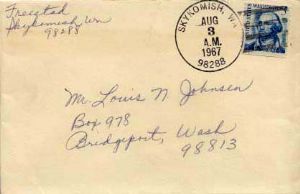 Freestad
Skykomish, Wn
98288
SKYKOMISH, WA
AUG
3
A.M.
1967
98288
Mr Louis N Johnsen
Box 978
Bridgeport, Wash
98813